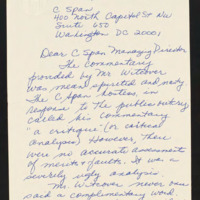 C Span
400 North Capitol St NW
Suite 650
Washington DC 20001
Dear C Span Managing Director
The commentary
provided by Mr Witcover
was mean spirited and nasty
The C Span hostess, in
response to the public outcry
called his commentary
"a critique" (or critical
analysis) However, there
were no accurate assessment
of merits or faults. It was a
severely ugly analysis.
Mr Witcover never once
said a complimentary word.